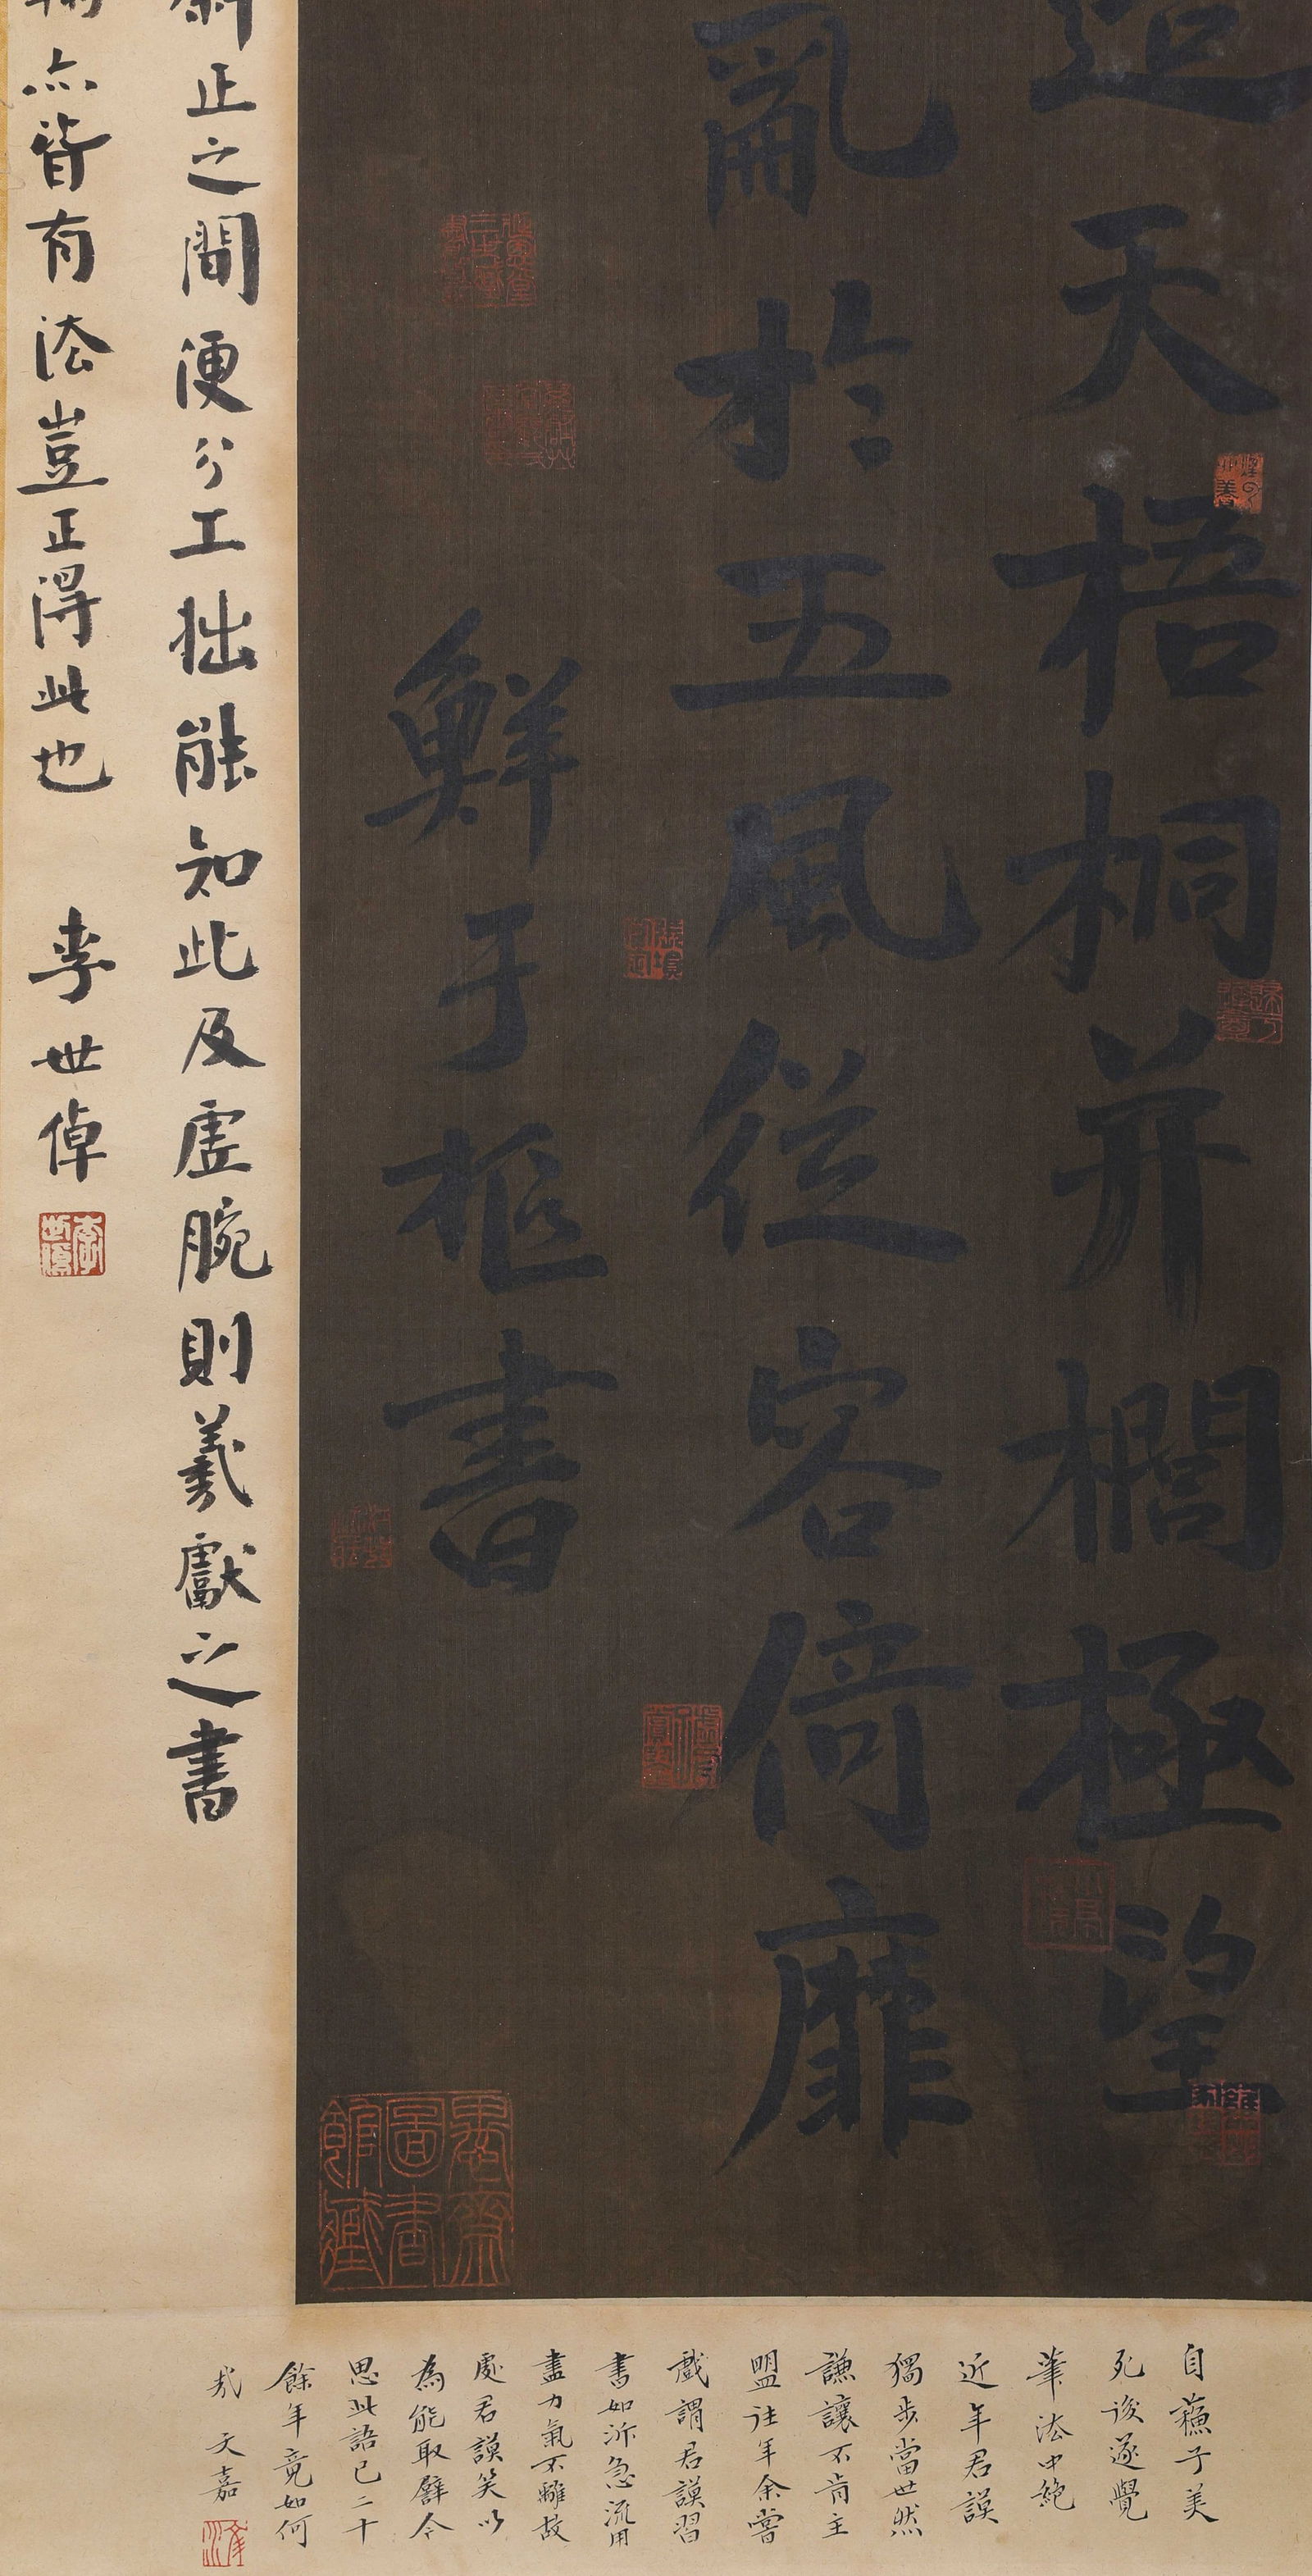 造天梧桐并櫚極望
亂於五風從容倚靡
鮮于樞書
斜正之間便分工拙能知此及虛腕則羲獻之書
亦皆有法豈止得此也 李世倬
自蘇子美
死後遂覺
筆法中絕
近年君謨
獨步當世然
謙讓不肯主
盟往年余嘗
戲謂君謨習
書如泝急流用
盡力氣不離故
處君謨笑以
為能取譬今
思此語已二十
餘年竟如何
哉 文嘉
愚齋圖書館藏